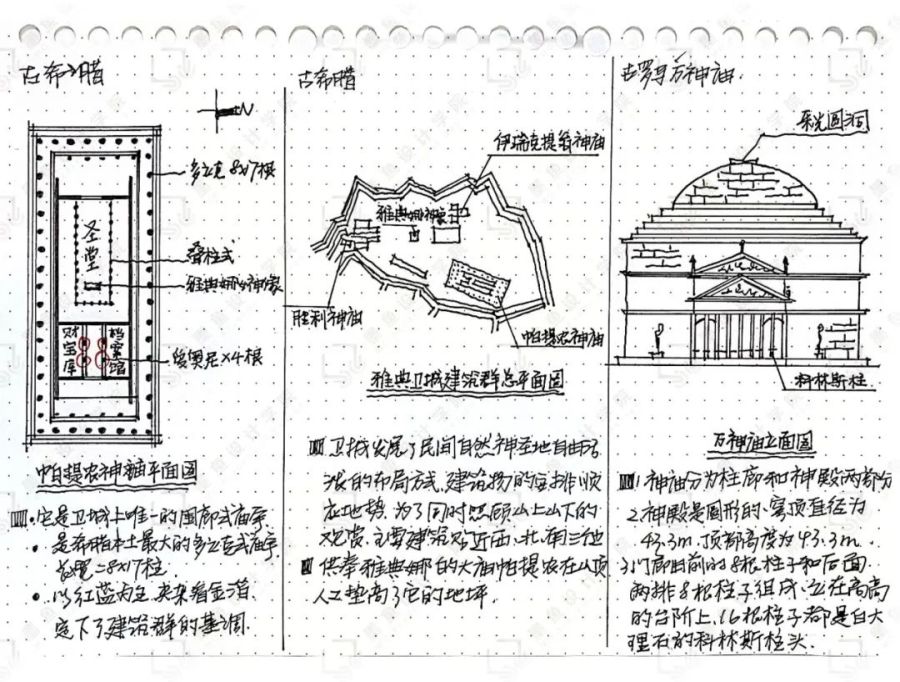 古希腊
N
多立克 8x17根
圣堂
叠柱式
雅典娜神像
财宝库
档案馆
爱奥尼x4根
帕提农神庙平面图
• 它是卫城上唯一的围廊式庙宇
• 是希腊本土最大的多立克式庙宇
8x17柱
• 以红蓝为主,夹杂着金箔
定下了建筑群的基调.
古希腊
伊瑞克提翁神庙
雅典娜神像
胜利神庙
帕提农神庙
雅典卫城建筑群总平面图
卫城发展了民间自然神圣地自由活
泼的布局方式,建筑物的安排顺
应地势,为了同时照顾山上山下的
观赏,主要建筑贴近西、北、南三边
供奉雅典娜的大庙帕提农在山顶
人工垫高了它的地坪.
古罗马万神庙.
采光圆洞
科林斯柱.
万神庙立面图
1.神庙分为柱廊和神殿两部分
2.神殿是圆形的、穹顶直径为
43.3m.顶部高度为43.3m.
3.门廊由前的8根柱子和后面
两排8根柱子组成、立在高高
的台阶上、16根柱子都是白大
理石的科林斯柱头.